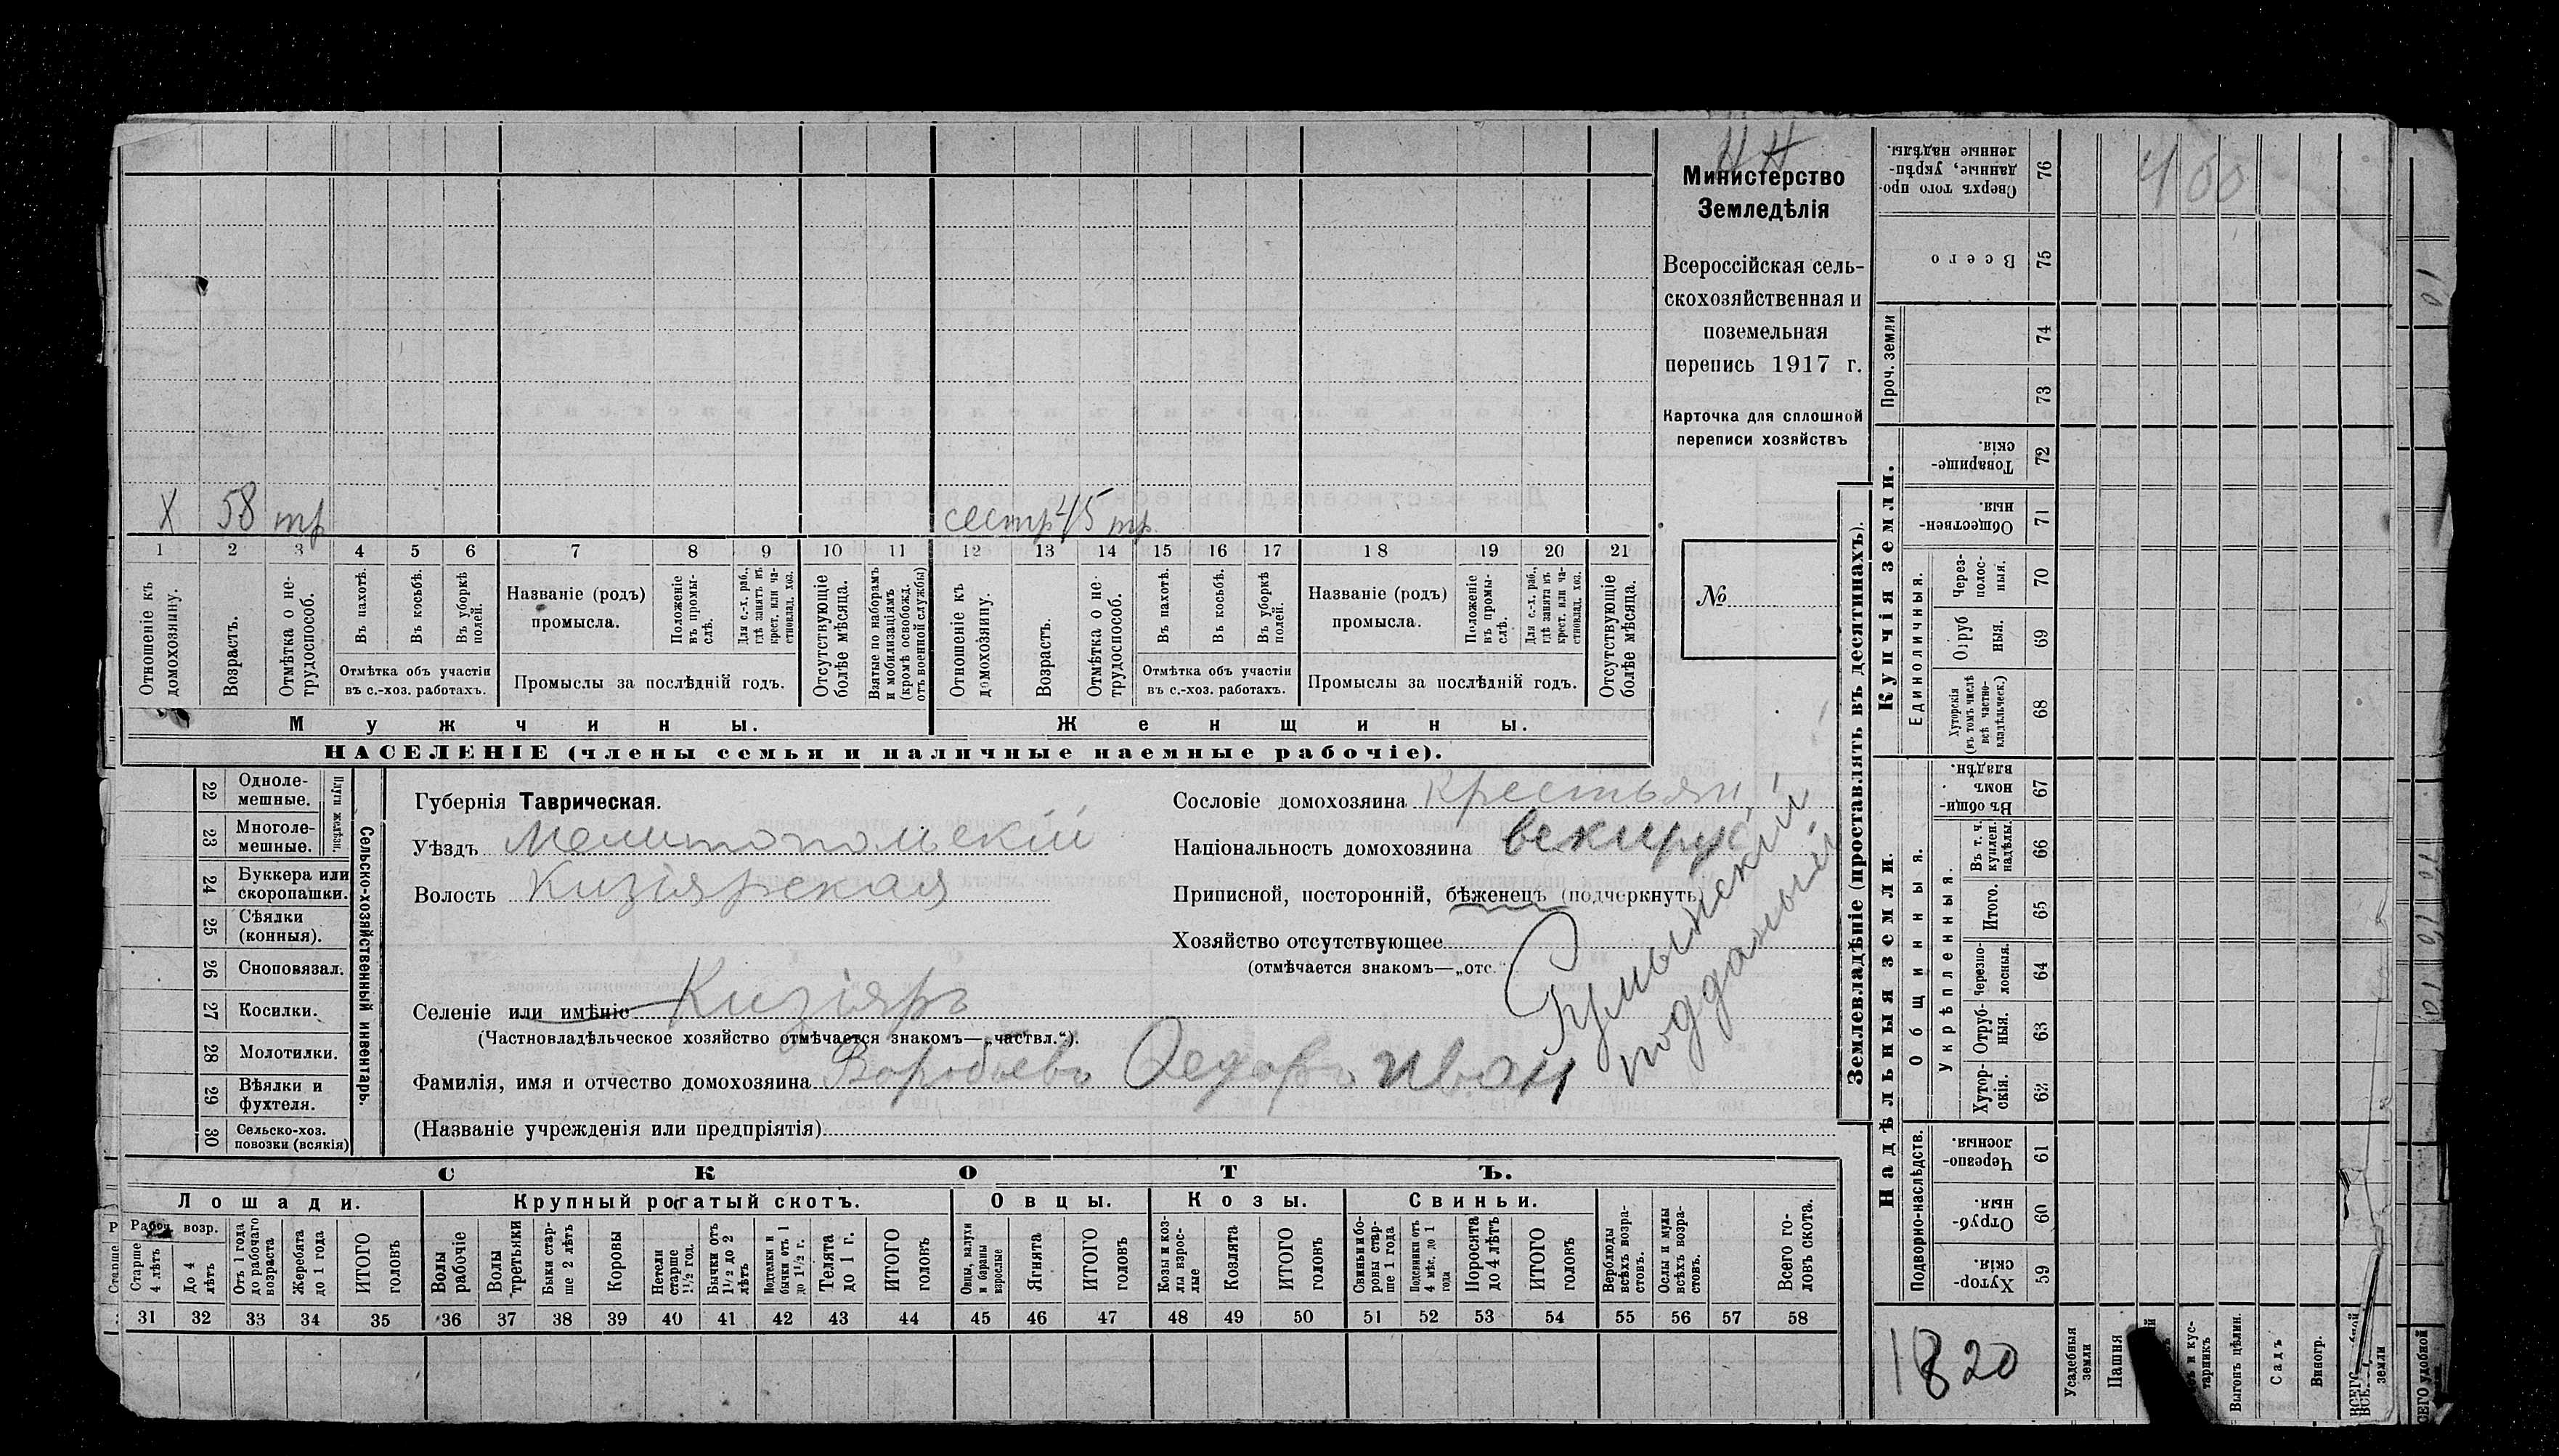 НН
400
Министерство
Земледѣлія
Всероссійская сель-
скохозяйственная и
поземельная
перепись 1917 г.
Карточка для сплошной
переписи хозяйствъ
№
Х 58 тр сестр 45 тр.
1 2 3 4 5 6 7 8 9 10 11 12 13 14 15 16 17 18 19 20 21
Отношеніе къ домохозяину.
Возрастъ.
Отмѣтка о не-трудоспособ.
Въ пахотѣ.
Въ косьбѣ.
Въ уборкѣ полей.
Отмѣтка объ участіи
въ с.-хоз. работахъ.
Названіе (родъ)
промысла.
Положеніе въ промы-слѣ.
Для с.-х. раб., гдѣ занятъ въ крест. или ча-стновлад. хоз.
Промыслы за послѣдній годъ.
Отсутствующіе болѣе мѣсяца.
Взятые по наборамъ и мобилизаціямъ (кромѣ освобожд. отъ военной службы)
Отношеніе къ домохозяину.
Возрастъ.
Отмѣтка о не-трудоспособ.
Въ пахотѣ.
Въ косьбѣ.
Въ уборкѣ полей.
Отмѣтка объ участіи
въ с.-хоз. работахъ.
Названіе (родъ)
промысла.
Положеніе въ промы-слѣ.
Для с.-х. раб., гдѣ занята въ крест. или ча-стновлад. хоз.
Промыслы за послѣдній годъ.
Отсутствующіе болѣе мѣсяца.
Мужчины. Женщины.
НАСЕЛЕНІЕ (члены семьи и наличные наемные рабочіе).
22 Одноле-мешные.
23 Многоле-мешные.
Плуги желѣзн.
24 Буккера или скоропашки.
25 Сѣялки (конныя).
26 Сноповязал.
27 Косилки.
28 Молотилки.
29 Вѣялки и фухтеля.
30 Сельско-хоз. повозки (всякія)
Сельско-хозяйственный инвентарь.
Губернія Таврическая.
Уѣздъ Мелитопольскій
Волость Кизіярская
Селеніе или имѣніе Кизіяръ
(Частновладѣльческое хозяйство отмѣчается знакомъ—„частвл.“).
Фамилія, имя и отчество домохозяина Воробьевъ Федоръ Иван
(Названіе учрежденія или предпріятія)
Сословіе домохозяина крестьян
Національность домохозяина
Приписной, посторонній, бѣженецъ (подчеркнуть)
Хозяйство отсутствующее
(отмѣчается знакомъ—„отс.“
Румынскій
подданый
СКОТЪ.
Лошади. Крупный рогатый скотъ. Овцы. Козы. Свиньи.
Рабоч. возр.
Старше 4 лѣтъ
До 4 лѣтъ
Отъ 1 года до рабочаго возраста
Жеребята до 1 года
ИТОГО головъ
Волы рабочіе
Волы третьяки
Быки стар-ше 2 лѣтъ
Коровы
Нетели старше 1½ год.
Бычки отъ 1½ до 2 лѣтъ
Подтелки и бычки отъ 1 до 1½ г.
Телята до 1 г.
ИТОГО головъ
Овцы, валухи и бараны взрослые
Ягнята
ИТОГО головъ
Козы и коз-лы взрос-лые
Козлята
ИТОГО головъ
Свиньи и бо-ровы стар-ше 1 года
Подсвинки отъ 4 мѣс. до 1 года
Поросята до 4 лѣтъ
ИТОГО головъ
Верблюды всѣхъ возра-стовъ.
Ослы и мулы всѣхъ возра-стовъ.
Всего го-ловъ скота.
31 32 33 34 35 36 37 38 39 40 41 42 43 44 45 46 47 48 49 50 51 52 53 54 55 56 57 58
Землевладѣніе (проставлять въ десятинахъ).
Сверхъ того про-данные, укрѣп-ленные надѣлы. 76
Всего 75
Проч. земли
74
73
Купчія земли.
Товарище-скія. 72
Обществен-ныя. 71
Единоличныя.
Через-полос-ныя. 70
Отруб ныя. 69
Хуторскія (въ томъ числѣ всѣ частно-владѣльческ.) 68
Надѣльныя земли.
Общинныя.
Въ общин-номъ владѣн. 67
Укрѣпленныя.
Въ т. ч. куплен. надѣлы. 66
Итого. 65
Черезпо-лосныя. 64
Отруб-ныя. 63
Хутор-скія. 62
Подворно-наслѣдств.
Черезпо-лосныя. 61
Отруб-ныя. 60
Хутор-скія. 59
1820
Усадебныя земли
Пашня
и кус-тарникъ
Выгонъ цѣлин.
Садъ
Виногр.
земли